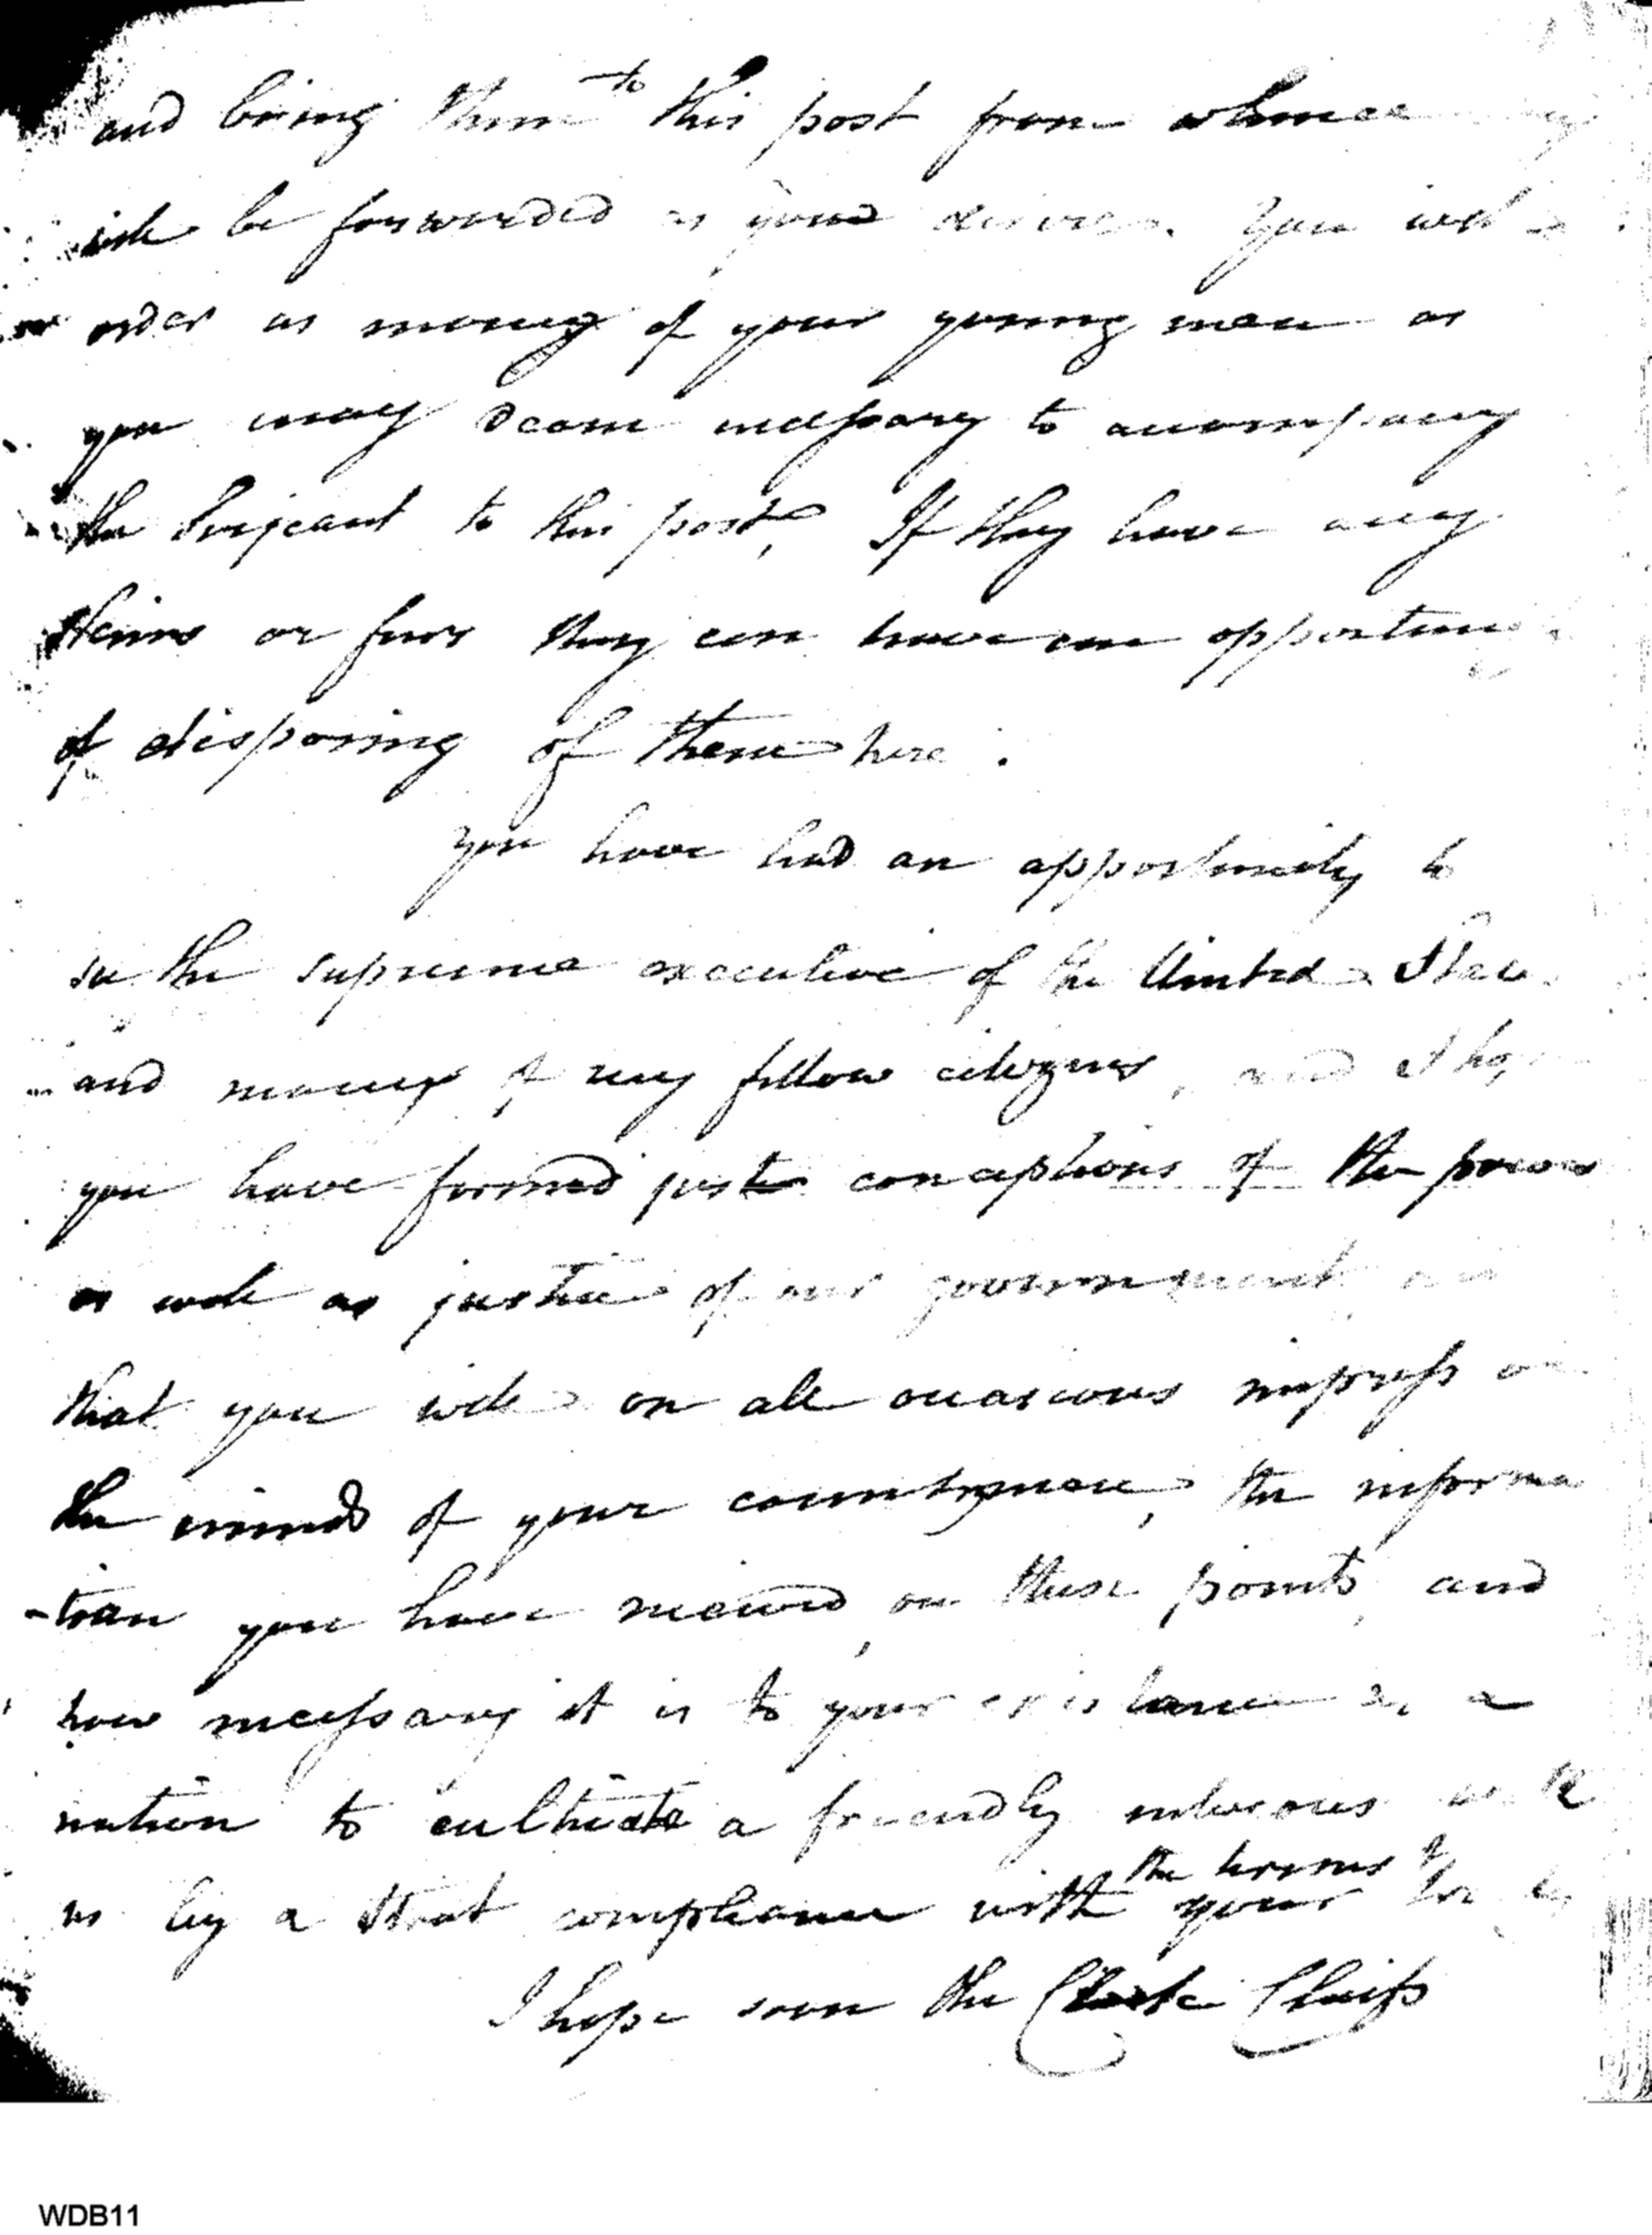 and bring them to this post from whence
will be forwarded as you desire. You will
order as many of your young men as
you may deem necessary to accompany
the Serjeant to this post, If they have any
skins or furs they can have an opportuni
of disposing of them here.
You have had an opportunity to
see the supreme executive of the United States
and many of my fellow citizens, and I hop
you have formed just conceptions of the power
as well as justice of our government,
that you will on all occasions impress on
the minds of your countrymen, the informa
-tion you have received, on these points, and
how necessary it is to your existance as a
nation to cultivate a friendly intercours with
the terms of
us by a strict compliance with your
I hope soon the Chiefs
WDB11